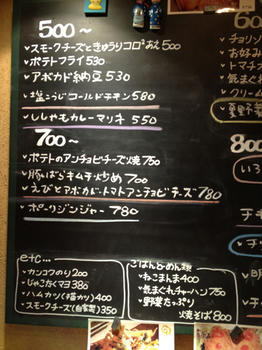 500～
スモークチーズときゅうりコロコロあえ500
ポテトフライ 530
アボカド納豆 530
塩こうじコールドチキン 580
ししゃもカレーマリネ 550
700～
ポテトのアンチョビチーズ焼 750
豚ばらキムチ炒め 700
えびとアボカドトマトアンチョビチーズ 780
ポークジンジャー 780
etc...
カンコクのり 200
じゃこたくマヨ 380
ハムカツ(下畑カツ) 400
スモークチーズ(自家製) 350
ごはんとめん類
ねこまんま 400
気まぐれチャーハン 750
野菜たっぷり
焼そば 800
6
チョリソ
お好み
トマチ
気まぐ
クリーム
夏野菜
800
いろ
チキ